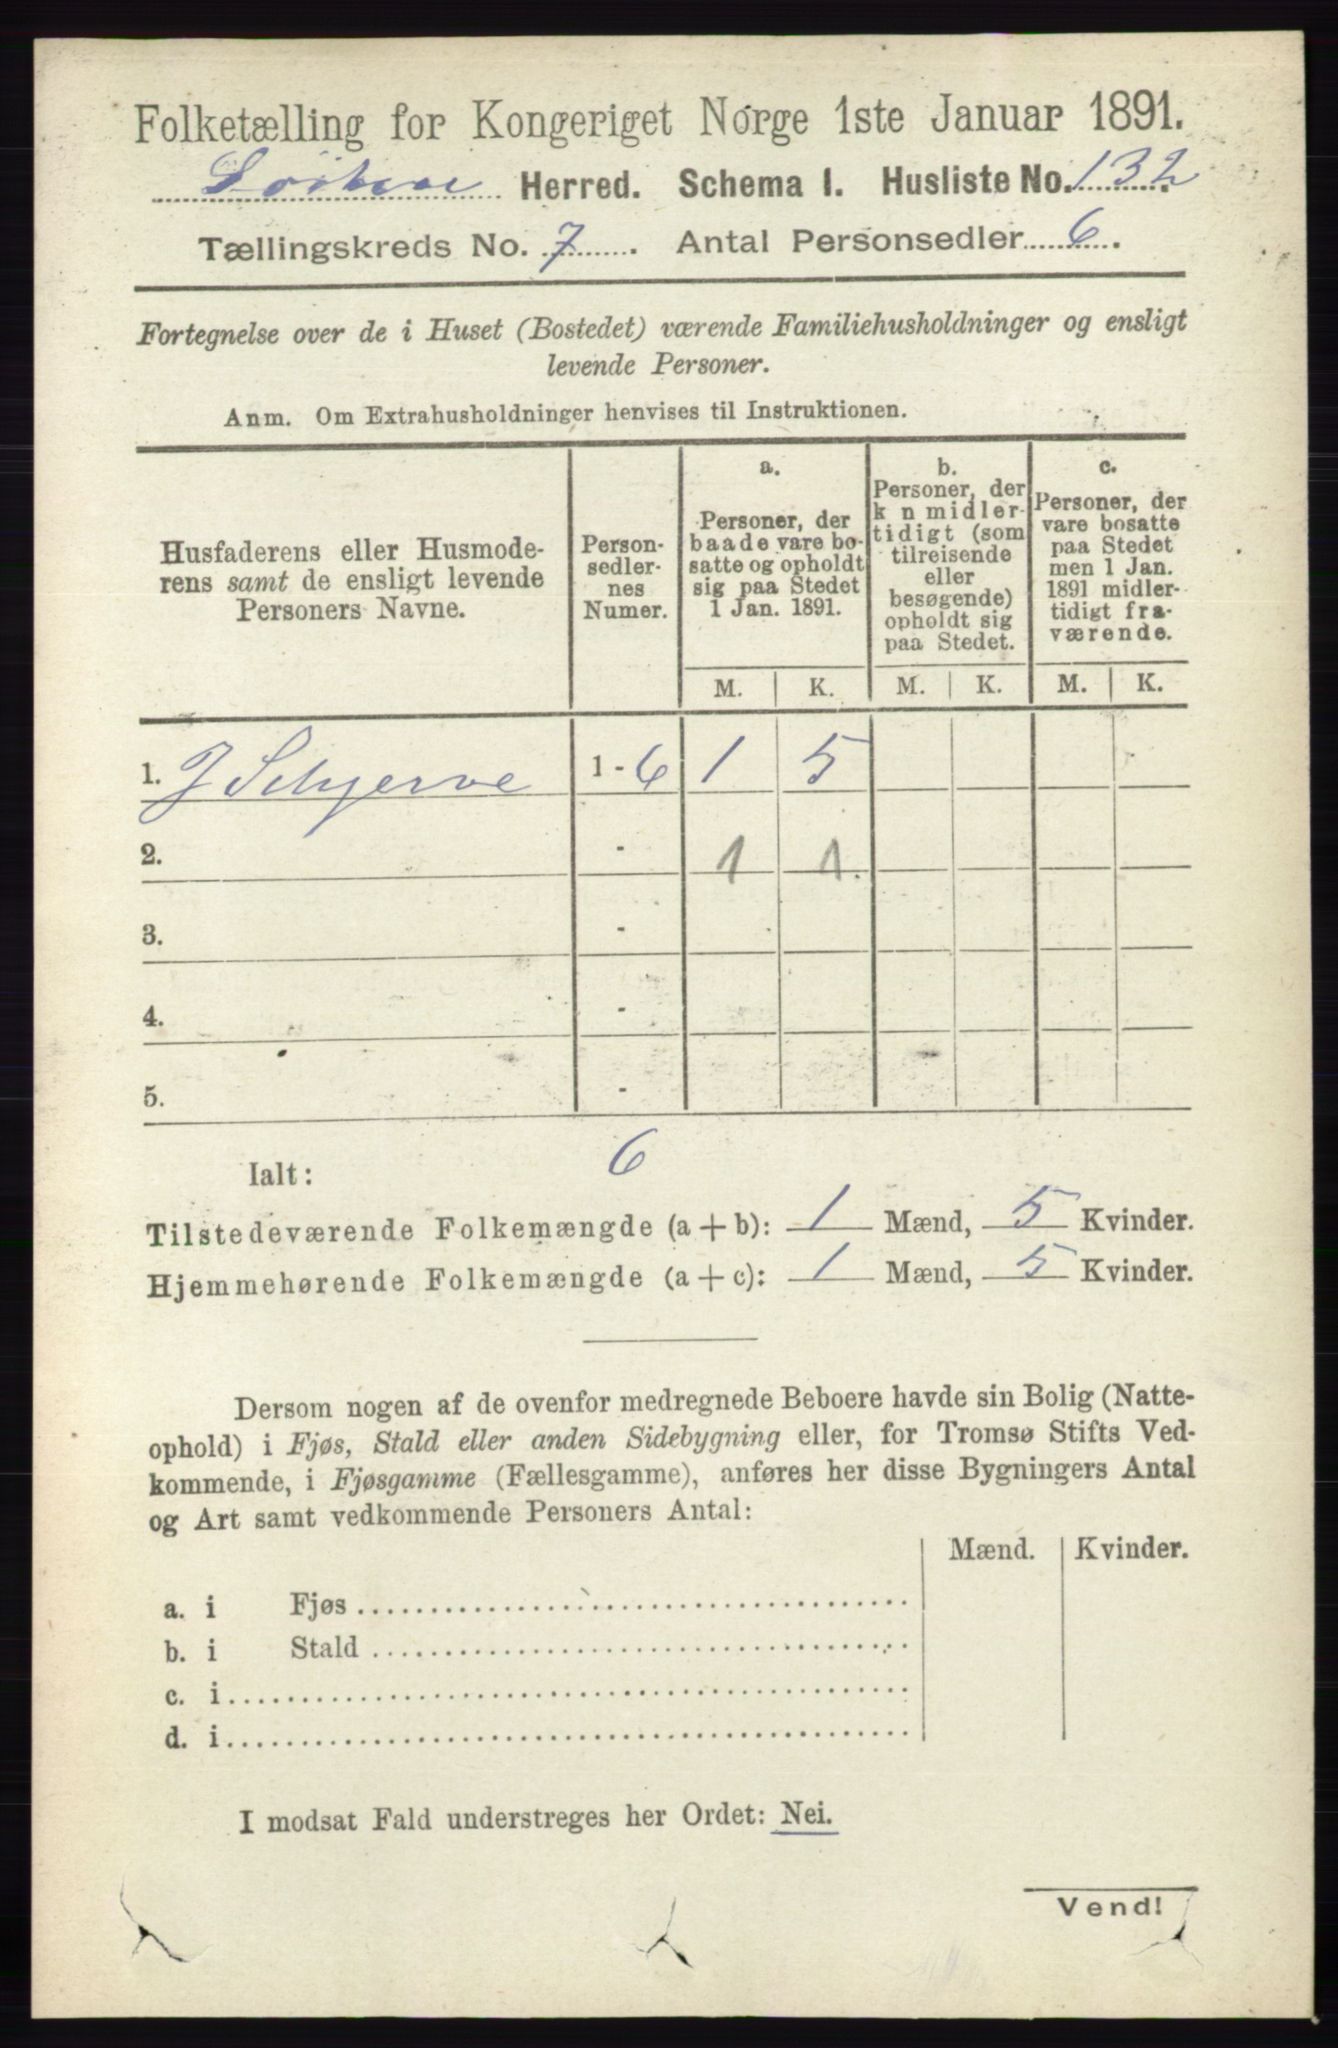 Folketælling for Kongeriget Norge 1ste Januar 1891.
Løiten Herred. Schema I. Husliste No. 132
Tællingskreds No. 7. Antal Personsedler 6.
Fortegnelse over de i Huset (Bostedet) værende Familiehusholdninger og ensligt
levende Personer.
Anm. Om Extrahusholdninger henvises til Instruktionen.
Husfaderens eller Husmode-
rens samt de ensligt levende
Personers Navne.
Person-
sedler-
nes
Numer.
a.
Personer, der
baade vare bo-
satte og opholdt
sig paa Stedet
1 Jan. 1891.
b.
Personer, der
k n midler-
tidigt (som
tilreisende
eller
besøgende)
opholdt sig
paa Stedet.
c.
Personer, der
vare bosatte
paa Stedet
men 1 Jan.
1891 midler-
tidigt fra-
værende.
M. K. M. K. M. K.
1. J Schjerve 1 - 6 1 5
2. - 1 1.
3. -
4. -
5. -
Ialt: 6
Tilstedeværende Folkemængde (a + b): 1 Mænd, 5 Kvinder.
Hjemmehørende Folkemængde (a + c): 1 Mænd, 5 Kvinder.
Dersom nogen af de ovenfor medregnede Beboere havde sin Bolig (Natte-
ophold) i Fjøs, Stald eller anden Sidebygning eller, for Tromsø Stifts Ved-
kommende, i Fjøsgamme (Fællesgamme), anføres her disse Bygningers Antal
og Art samt vedkommende Personers Antal:
Mænd. Kvinder.
a. i Fjøs
b. i Stald
c. i
d. i
I modsat Fald understreges her Ordet: Nei.
Vend!